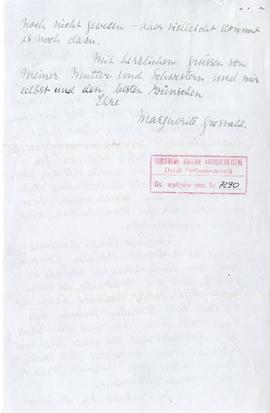 noch nicht gebeten - aber vielleicht kommt
es noch dazu.
Mit herzlichen Grüssen von
meiner Mutter und Schwestern und mir
selbst und den besten Wünschen
Ihre
Marguerite Grosvald.
PAŃSTWOWE MUZEUM ARCHEOLOGICZNE
Dział Dokumentacji
Ks. wpływów poz. Nr 7690